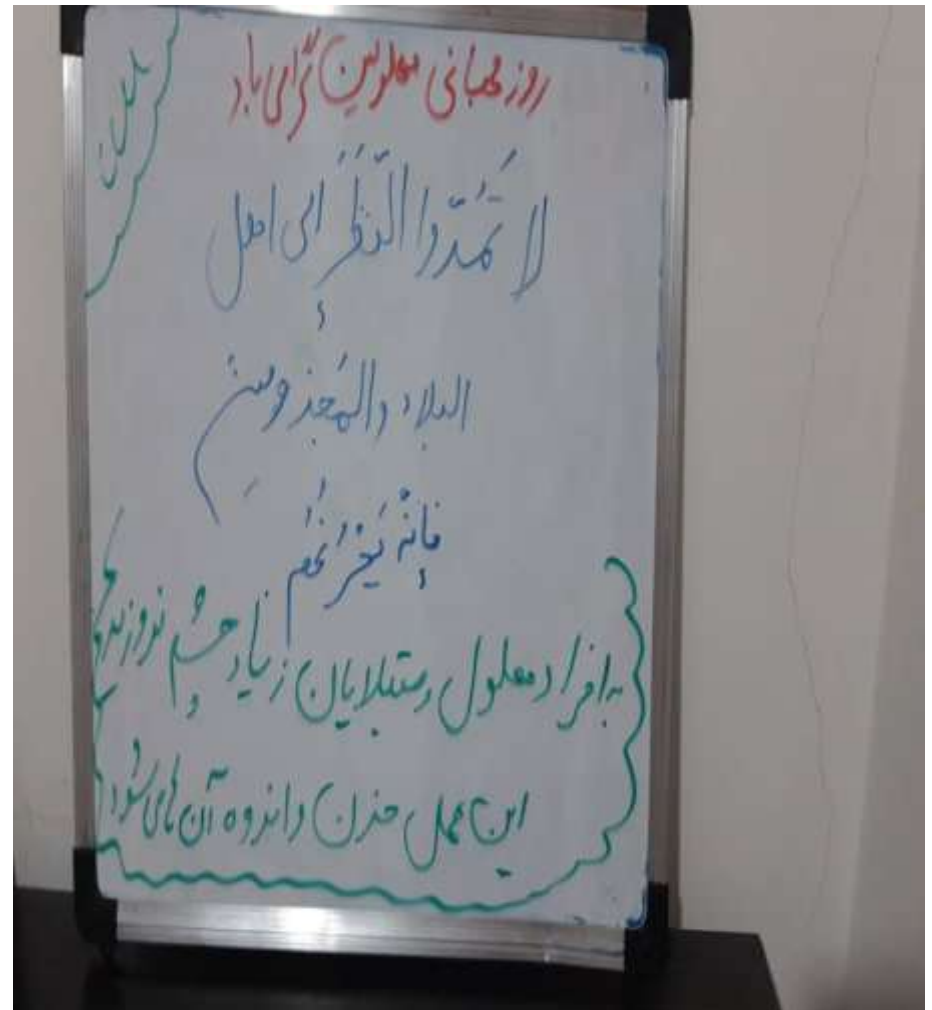 روز جهانی معلولین گرامی باد
لا تُمُدّوا النَّظَرَ إلی اهل
البلاء والمَجذومین
فإنَّهُ یَحْزُنُهُم
به افراد معلول و مبتلایان زیاد چشم ندوزید
این عمل حزن و اندوه آن ها می شود